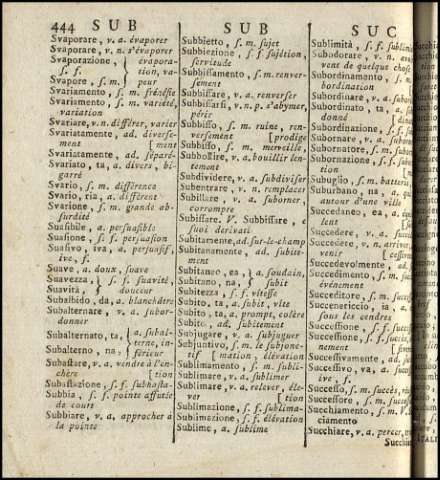 444 SUB
Svaporare, v. a. évaporer
Svaporare, v. n. s'évaporer
Svaporazione, } évapora-
ſ. f. } tion, va-
Svapore, ſ. m. } peur
Svariamento, ſ. m. frénéſie
Svariamento, ſ. m. variété,
variation
Svariare, v. n. différer, varier
Svariatamente, ad. diverse-
ment [ment
Svariatamente, ad. séparé-
Svariato, ta, a. divers, bi-
garré
Svario, ſ. m. différence
Svario, ria, a. différent
Svarione, ſ. m. grande ab-
surdité
Suaſibile, a. perſuaſible
Suaſione, ſ. f. perſuaſion
Suaſivo, iva, a. perſuaſif,
ive, f.
Suave, a. doux, ſuave
Suavezza, } ſ. f. ſuavité,
Suavità, } douceur
Subalbido, da, a. blanchâtre
Subalternare, v. a. subor-
donner
Subalternato, ta, } a. subal-
terne, in-
Subalterno, na, } férieur
Subaſtare, v. a. vendre à l'en-
chere [tion
Subaſtazione, ſ. f. ſubhaſta-
Subbia, ſ. f. pointe affutée
de cours
Subbiare, v. a. approcher à
la pointe
SUB
Subbietto, ſ. m. ſujet
Subbiezione, ſ. f. ſujétion,
ſervitude
Subbiſſamento, ſ. m. renver-
ſement
Subbiſſare, v. a. renverſer
Subbiſſarſi, v. n. p. s'abymer,
périr
Subbiſſo, ſ. m. ruine, ren-
verſement [prodige
Subbiſſo, ſ. m. merveille,
Subbollire, v. a. bouillir len-
tement
Subdividere, v. a. ſubdiviſer
Subentrare, v. n. remplacer
Subillare, v. a. ſuborner,
corrompre
Subiſſare. V. Subbiſſare, e
ſuoi derivati
Subitamente, ad. ſur-le-champ
Subitanamente, ad. ſubite-
ment
Subitaneo, ea, } a. ſoudain,
Subitano, na, } ſubit
Subitezza, ſ. f. vîteſſe
Subito, ta, a. ſubit, vîte
Subito, ta, a. prompt, colère
Subito, ad. ſubitement
Subjugare, v. a. ſubjuguer
Subjuntivo, ſ. m. le ſubjonc-
tif [mation, élévation
Sublimamento, ſ. m. ſubli-
Sublimare, v. a. ſublimer
Sublimare, v. a. relever, éle-
ver [tion
Sublimazione, ſ. f. ſublima-
Sublimazione, ſ. f. élévation
Sublime, a. ſublime
SUC
Sublimità, ſ. f. ſublimi
Subodorare, v. n.
vent de quelque choſe
Subordinamento, ſ.
bordination
Subordinare, v. a. ſubor
Subordinato, ta, a.
donné
Subordinazione, ſ. f.
Subornare, v. a. ſubor
Subornatore, ſ. m.
Subornazione, ſ. f. ſubor
tion
Subuglio, ſ. m. batterie
Suburbano, na, a. qui
autour d'une ville
Succedaneo, ea, a.
lent
Succedere, v. a. ſuccé
Succedere, v. n. arriver
venir [ceſſive
Succedevolmente, ad.
Succedimento, ſ. m. ſuccè
événement
Succeditore, ſ. m. ſucceſ
Succenericcio, ia, a.
ſous les cendres
Succeſſione, ſ. f. ſucceſſ
Succeſſione, ſ. f. ſuccè
ment
Succeſſivamente, ad. ſuc
Succeſſivo, va, a. ſucceſ
ive, f.
Succeſſo, ſ. m. ſuccès,
Succeſſo, ſ. m. ſuccès
Succhiamento, ſ. m. V.
ciamento
Succhiare, v. a. percer,
Succhia